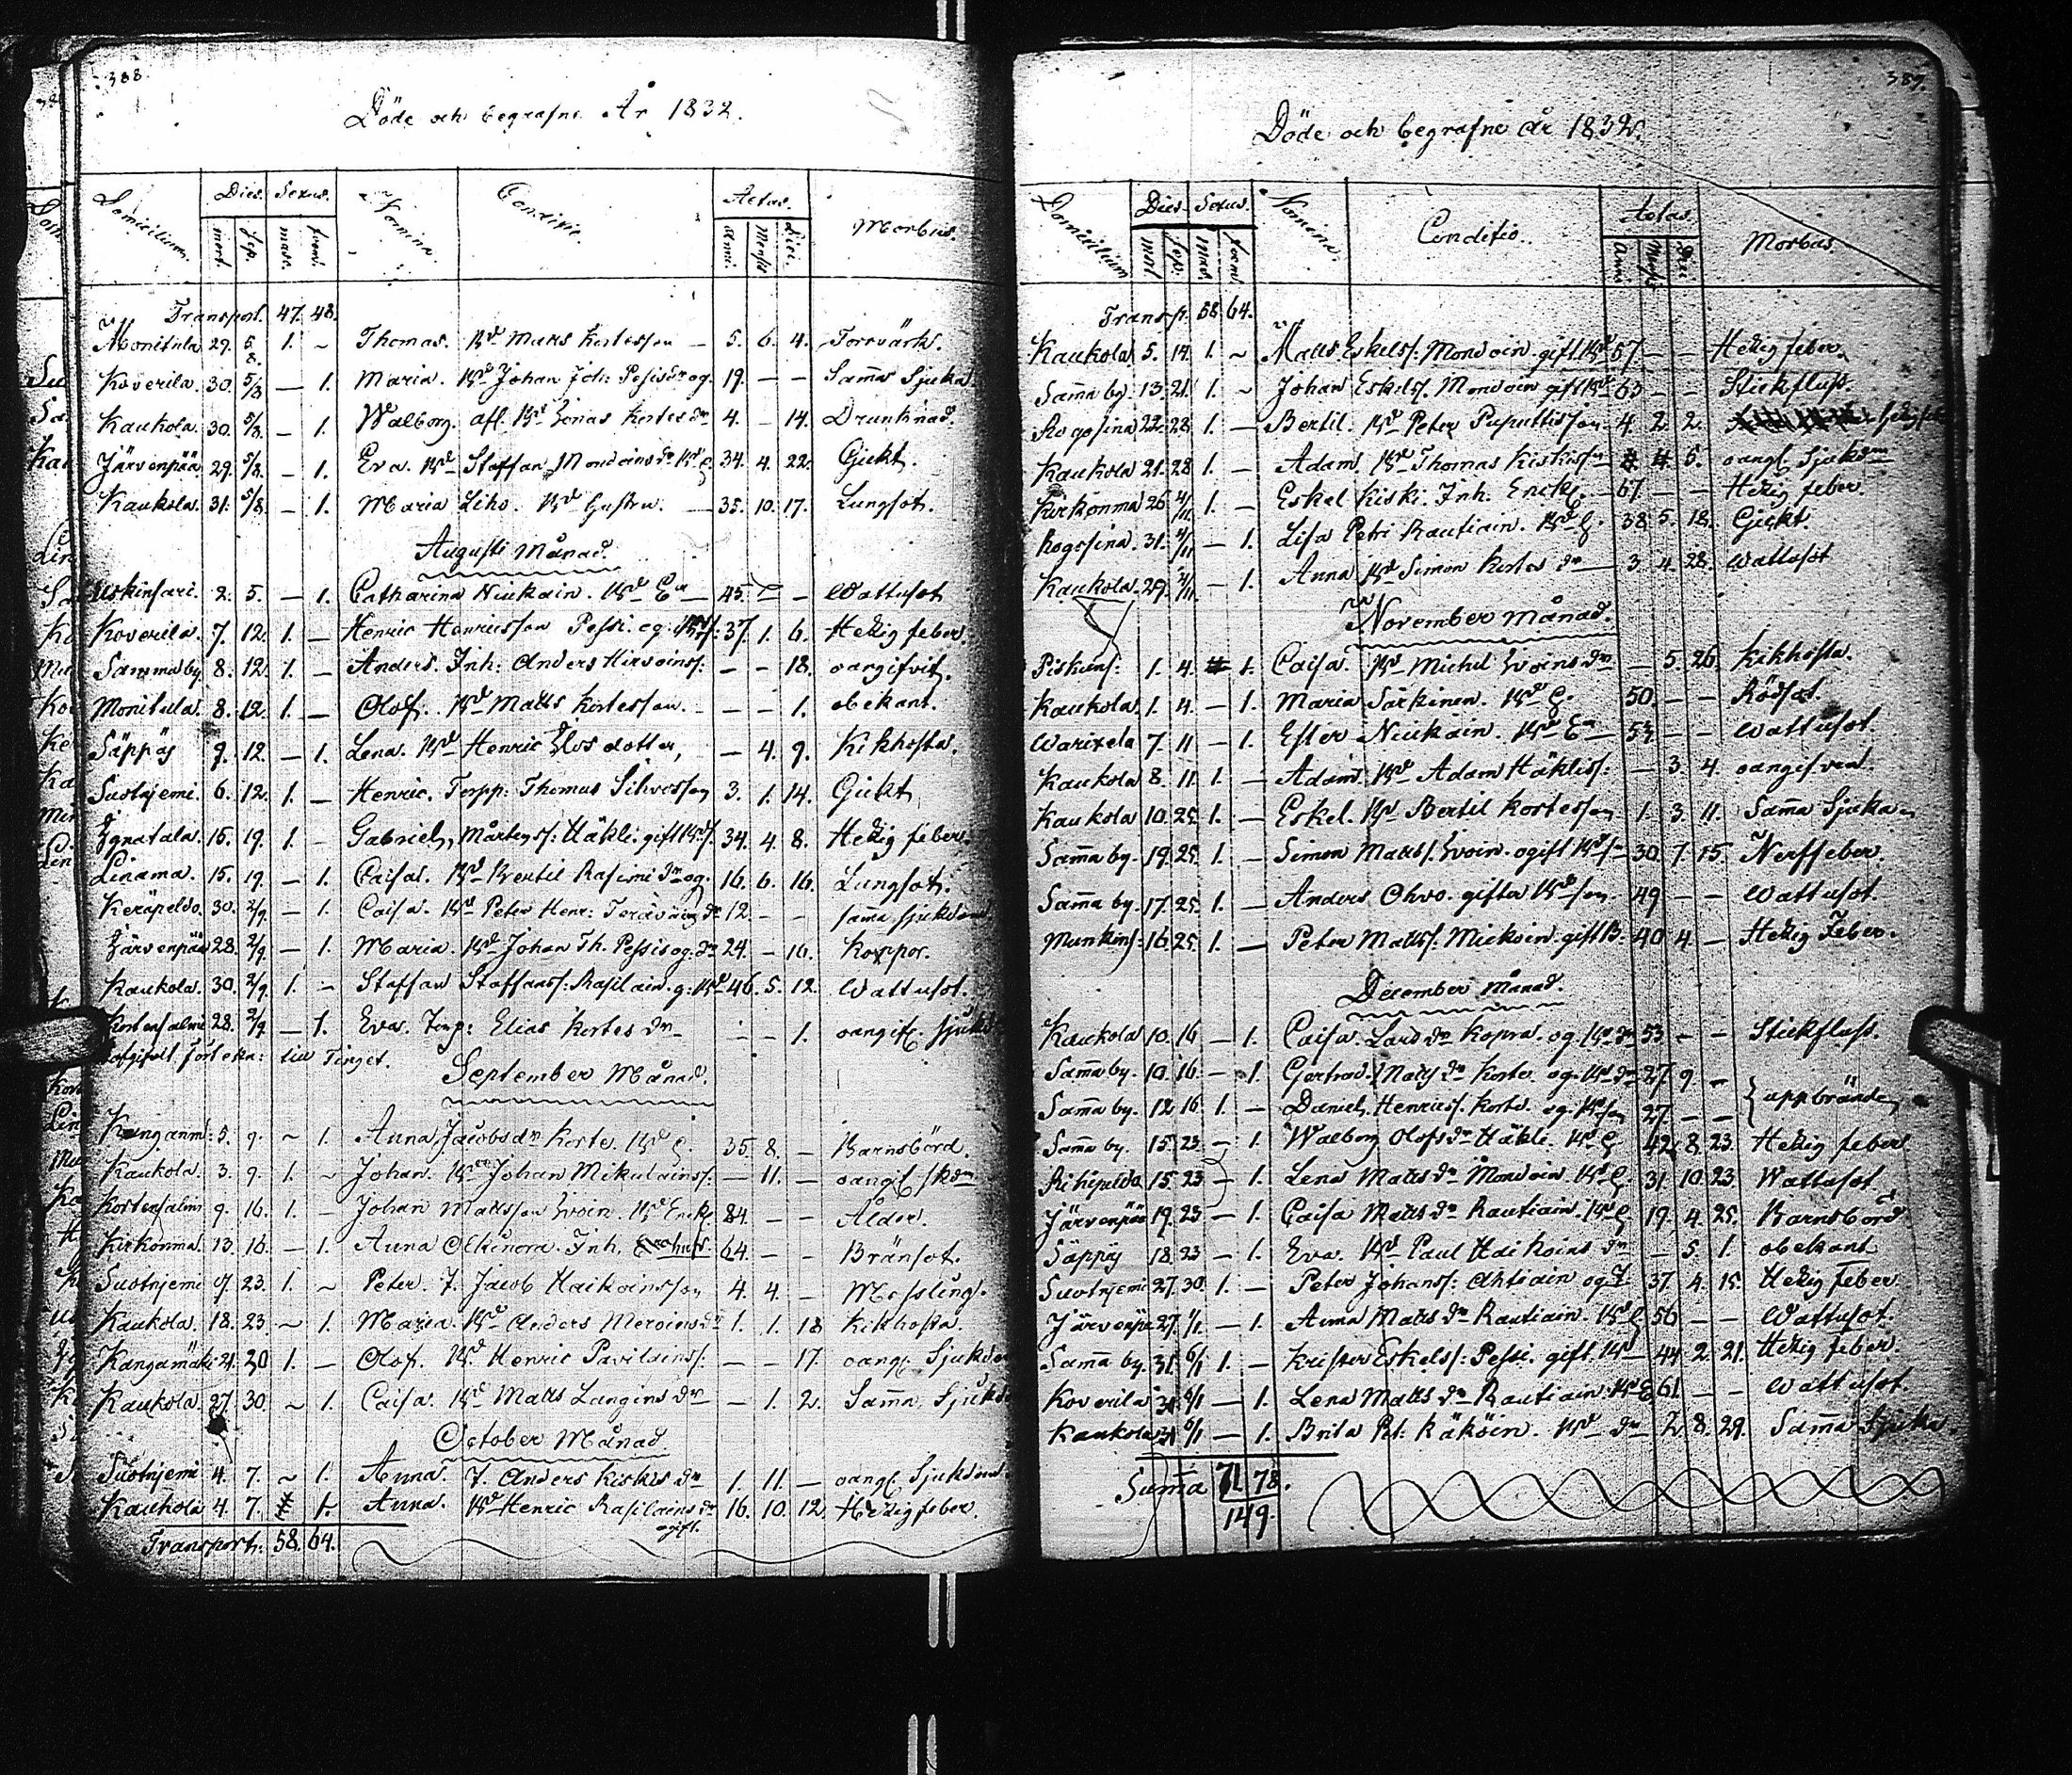 388.
Döde och begrafne År 1832.
Domicilium. Dies. Sexus. Nomina. Conditio. Aetas. Morbus.
mort. sep. masc. foem. anni. Mens. Diei.
Transport. 47. 48.
Monitula 29. 5/8. 1. ~ Thomas. Bd Matts Kortesson — 5. 6. 4. Torrvärk.
Koverila. 30. 5/8 — 1. Maria. Bd Johan Joh: Pessis dr og. 19. — — Sama Sjuka
Kaukola. 30. 5/8 — 1. Walborg. afl. Bd Jonas Kortes dr 4. — 14. Drunknad.
Järvenpää 29. 5/8. — 1. Eva. Bd Staffan Mondoins dr 34. 4. 22. Gickt.
Kaukola. 31. 5/8. — 1. Maria Liho. Bd Hustru. — 35. 10. 17. Lungsot.
Augusti Månad.
Uskinsari. 2. 5. — 1. Catharina Niukain. Bd Ea — 45. — — Wattusot
Koverila. 7. 12. 1. — Henric Henricsson Pessi. 37. 1. 6. Hetzig feber.
Sammaby. 8. 12. 1. — Anders. Inh: Anders Hirvoins s: — — 18. oangifvit.
Monitula. 8. 12. 1. — Olof. Bd Matts Kortesson. — — 1. obekant.
Säppäs 9. 12. — 1. Lena. Bd Henric dotter, — 4. 9. Kikhosta.
Suotnjemi. 6. 12. 1. — Henric. Torpp: Thomas Silvosson 3. 1. 14. Gickt
Ignatala. 15. 19. 1. — Gabriel, Mårtens s: Häkli. gift 34. 4. 8. Hetzig feber.
Linama. 15. 19. — 1. Caisa. Bd Bertil Rasimi dr og. 16. 6. 16. Lungsot.
Keräpeldo. 30. 2/9. — 1. Caisa. Bd Peter Henr: dr 12. — — sama sjukdom
Järvenpää 28. 2/9. — 1. Maria. Bd Johan Th. Pessis og: dr 24. — 10. Koppor.
Kaukola. 30. 2/9. 1. — Staffan Staffans s: Rasilain. g: Bd 46. 5. 12. Wattusot.
Kortensalmi 28. 2/9 — 1. Eva. Torp: Elias Kortes dr — — 1. oangif. sjukd
till Tinget.
September Månad.
Kanganm: 5. 9. ~ 1. Anna Jacobs dr Korte. Bd E. 35. 8. — Barnsbörd.
Kaukola. 3. 9. 1. ~ Johan. Bd Johan Mikulains s: — 11. — oangif skdm
Kortensalmi 9. 16. 1. — Johan Mattsson Ivoin. Bd Enkl. 84. — — Ålder.
Kirkonma. 13. 16. — 1. Anna Inh. 64. — — Bränsot.
Suotnjemi 9. 23. 1. ~ Peter. T. Jacob Haikoinsson 4. 4. — Messling.
Kaukola. 18. 23. ~ 1. Maria. Bd Anders Meroins dr 1. 1. 18 Kikhosta.
Kangamäki 21. 30 1. — Olof. Bd Henric Pavilains s: — — 17. oang: Sjukdom
Kaukola. 27. 30. ~ 1. Caisa. Bd Matts Langins dr — 1. 2. Sama Sjukd
October Månad.
Suotnjemi 4. 7. ~ 1. Anna. T. Anders Kiskis dr 1. 11. — oang: Sjukdom
Kaukola 4. 7. 1. Anna. Bd Henric Rasilains dr 16. 10. 12. Hetzig feber.
ogift.
Transport. 58. 64.
389.
Döde och begrafne år 1832.
Domicilium Dies Sexus. Nomina. Conditio. Aetas. Morbus.
mort sep. mas. foem Anni Mens Diei
Transp. 58 64.
Kaukola 5. 14. 1. ~ Matts Eskels s: Mondoin gift Bd 57 — — Hetzig feber.
Sama by. 13. 21. 1. ~ Johan Eskels s. Mondoin gift Bd 63 — — Stickfluss.
Rogosina 22. 28. 1. — Bertil. Bd Peter Puputtisson 4. 2. 2.
Kaukola 21. 28 1. — Adam. Bd Thomas Kiskisson 4. 5. oangf. Sjukdm
Kirkonma 26 4/11 1. — Eskel Kiski. Inh: Enckl. — 67. — — Hetzig feber.
Rogosina. 31. 4/11 — 1. Lisa Petri Rautiain. Bd E. 38. 5. 18. Gickt.
Kaukola. 29. 4/11. — 1. Anna Bd Simon Kortes dr — 3. 4. 28. Wattusot
November månad.
Piskins: 1. 4. 1. Caisa. Bd Michel Ivoins dr — 5. 26 Kikhosta.
Kaukola. 1. 4. — 1. Maria Särkinen. Bd E. 50. — — Rödsot.
Warixela 7. 11 — 1. Ester Niukain. Bd Ea — 53. — — Wattusot.
Kaukola 8. 11. 1. — Adam. Bd Adam Häklis s: — 3. 4. oangifven.
Kaukola 10. 25. 1. — Eskel. Bd Bertil Kortesson 1. 3. 11. Sama Sjuka
Sama by. 19. 25. 1. — Simon Matts s. Ivoin. ogift 30. 7. 15. Nerffeber.
Sama by. 17. 25. 1. — Anders Ohvo. gifta Bd son. 49 — — Wattusot.
Munkins: 16. 25. 1. — Peter Matts s: Mickoin. gift B: 40 4. — Hetzig Feber.
December månad.
Kaukola 10. 16 — 1. Caisa Lars dr Kopra. og. Bd dr 53 — — Stickfluss.
Sama by. 10. 16. — 1. Gertrud. Matts dr Korte. og. Bd dr 27 9 —
Sama by. 12 16 1. — Daniel Henrics s. Korte. og. Bd son 27. — — } uppbrände
Sama by. 15. 23 — 1. Walborg Olofs dr Häkli. Bd E 42. 8. 23. Hetzig feber
Rihipeldo 15. 23 — 1. Lena Matts dr Mondoin Bd E. 31. 10. 23. Wattusot.
Järvenpää 19. 23 — 1. Caisa Matts dr Rautiain. Bd E. 19. 4. 25. Barnsbörd
Säppäs 18. 23 — 1. Eva. Bd Paul Haikoins dr — 5. 1. obekant
Suotnjemi 27. 30. 1. — Peter Johans s: Ahtiain og T. 37 4. 15. Hetzig feber
Järvenpä 27. 1/1. — 1. Anna Matts dr Rautiain. Bd E. 56 — — Wattusot.
Sama by. 31. 6/1 1. — Krister Eskels s: Pessi. gift. Bd — 44 2. 21. Hetzig feber.
Koverila 31 6/1 — 1. Lena Matts dr Rautiain. Bd E 61. — — Wattusot.
Kaukola 31 6/1 — 1. Brita Pet: Räköin. Bd dr 2. 8. 29. Sama Sjuka.
Suma 71 78.
149.